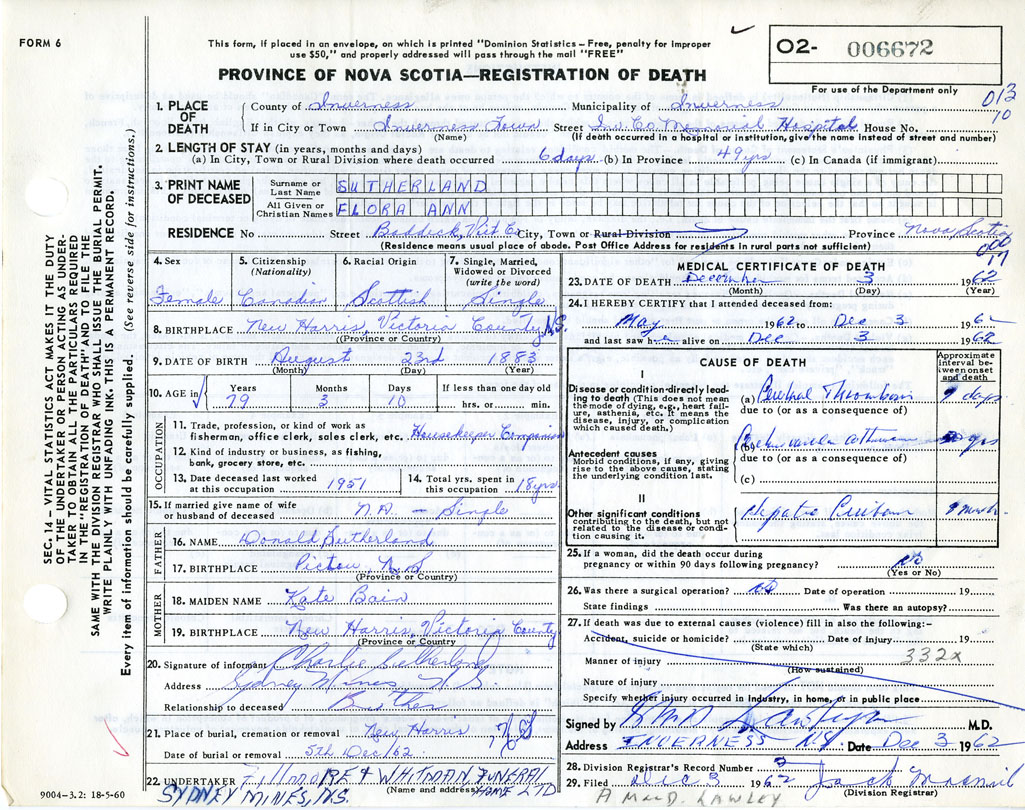 FORM 6
This form, if placed in an envelope, on which is printed "Dominion Statistics – Free, penalty for improper
use $50," and properly addressed will pass through the mail "FREE"
PROVINCE OF NOVA SCOTIA—REGISTRATION OF DEATH
O2- 006672
For use of the Department only
013
70
1. PLACE OF DEATH
County of Inverness Municipality of Inverness
If in City or Town Inverness Town Street Inv. Co Memorial Hospital House No.
(Name) (If death occurred in a hospital or institution, give its name instead of street and number)
2. LENGTH OF STAY (in years, months and days)
(a) In City, Town or Rural Division where death occurred 6 days (b) In Province 49 yrs (c) In Canada (if immigrant)
3. PRINT NAME OF DECEASED
Surname or Last Name SUTHERLAND
All Given or Christian Names FLORA ANN
RESIDENCE No Street Baddeck, Vict Co City, Town or Rural Division Province Nova Scotia
(Residence means usual place of abode. Post Office Address for residents in rural parts not sufficient)
000
17
4. Sex Female
5. Citizenship (Nationality) Canadian
6. Racial Origin Scottish
7. Single, Married, Widowed or Divorced (write the word) Single
8. BIRTHPLACE New Harris, Victoria County N.S.
(Province or Country)
9. DATE OF BIRTH August 23rd 1883
(Month) (Day) (Year)
10. AGE in Years 79 Months 3 Days 10 If less than one day old hrs. or min.
OCCUPATION
11. Trade, profession, or kind of work as fisherman, office clerk, sales clerk, etc. Housekeeper Companion
12. Kind of industry or business, as fishing, bank, grocery store, etc.
13. Date deceased last worked at this occupation 1951
14. Total yrs. spent in this occupation 18 yrs
15. If married give name of wife or husband of deceased N.A. – Single
FATHER
16. NAME Donald Sutherland
17. BIRTHPLACE Pictou, N.S
(Province or Country)
MOTHER
18. MAIDEN NAME Kate Bain
19. BIRTHPLACE New Harris, Victoria County
(Province or Country)
20. Signature of informant Charlie Sutherland
Address Sydney Mines, N.S.
Relationship to deceased Brother
21. Place of burial, cremation or removal New Harris N.S
Date of burial or removal 5th Dec/62
22. UNDERTAKER FILLMORE & WHITMAN FUNERAL HOME LTD
(Name and address)
SYDNEY MINES, N.S.
9004-3.2: 18-5-60
MEDICAL CERTIFICATE OF DEATH
23. DATE OF DEATH December 3 1962
(Month) (Day) (Year)
24. I HEREBY CERTIFY that I attended deceased from:
May 1962 to Dec 3 1962
and last saw her alive on Dec 3 1962
CAUSE OF DEATH
Approximate interval between onset and death
I
Disease or condition directly leading to death (This does not mean the mode of dying, e.g., heart failure, asthenia, etc. It means the disease, injury, or complication which caused death.)
(a) Cerebral Thrombosis days
due to (or as a consequence of)
Antecedent causes
Morbid conditions, if any, giving rise to the above cause, stating the underlying condition last.
(b) yrs
due to (or as a consequence of)
(c)
II
Other significant conditions contributing to the death, but not related to the disease or condition causing it.
Hepatic month
25. If a woman, did the death occur during pregnancy or within 90 days following pregnancy? No
(Yes or No)
26. Was there a surgical operation? No Date of operation 19
State findings Was there an autopsy?
27. If death was due to external causes (violence) fill in also the following:–
Accident, suicide or homicide? Date of injury 19
(State which) 332x
Manner of injury
(How sustained)
Nature of injury
Specify whether injury occurred in industry, in home, or in public place
Signed by M.D.
Address INVERNESS NS Date Dec 3 1962
28. Division Registrar's Record Number 3
29. Filed Dec 3 1962 Jack MacNeil
(Division Registrar)
A MacD. LAWLEY
SEC. 14 – VITAL STATISTICS ACT MAKES IT THE DUTY
OF THE UNDERTAKER OR PERSON ACTING AS UNDER-
TAKER TO OBTAIN ALL THE PARTICULARS REQUIRED
IN THE "REGISTRATION OF DEATH" AND TO FILE THE
SAME WITH THE DIVISION REGISTRAR WHO SHALL ISSUE THE BURIAL PERMIT.
WRITE PLAINLY WITH UNFADING INK. THIS IS A PERMANENT RECORD.
Every item of information should be carefully supplied. (See reverse side for instructions.)